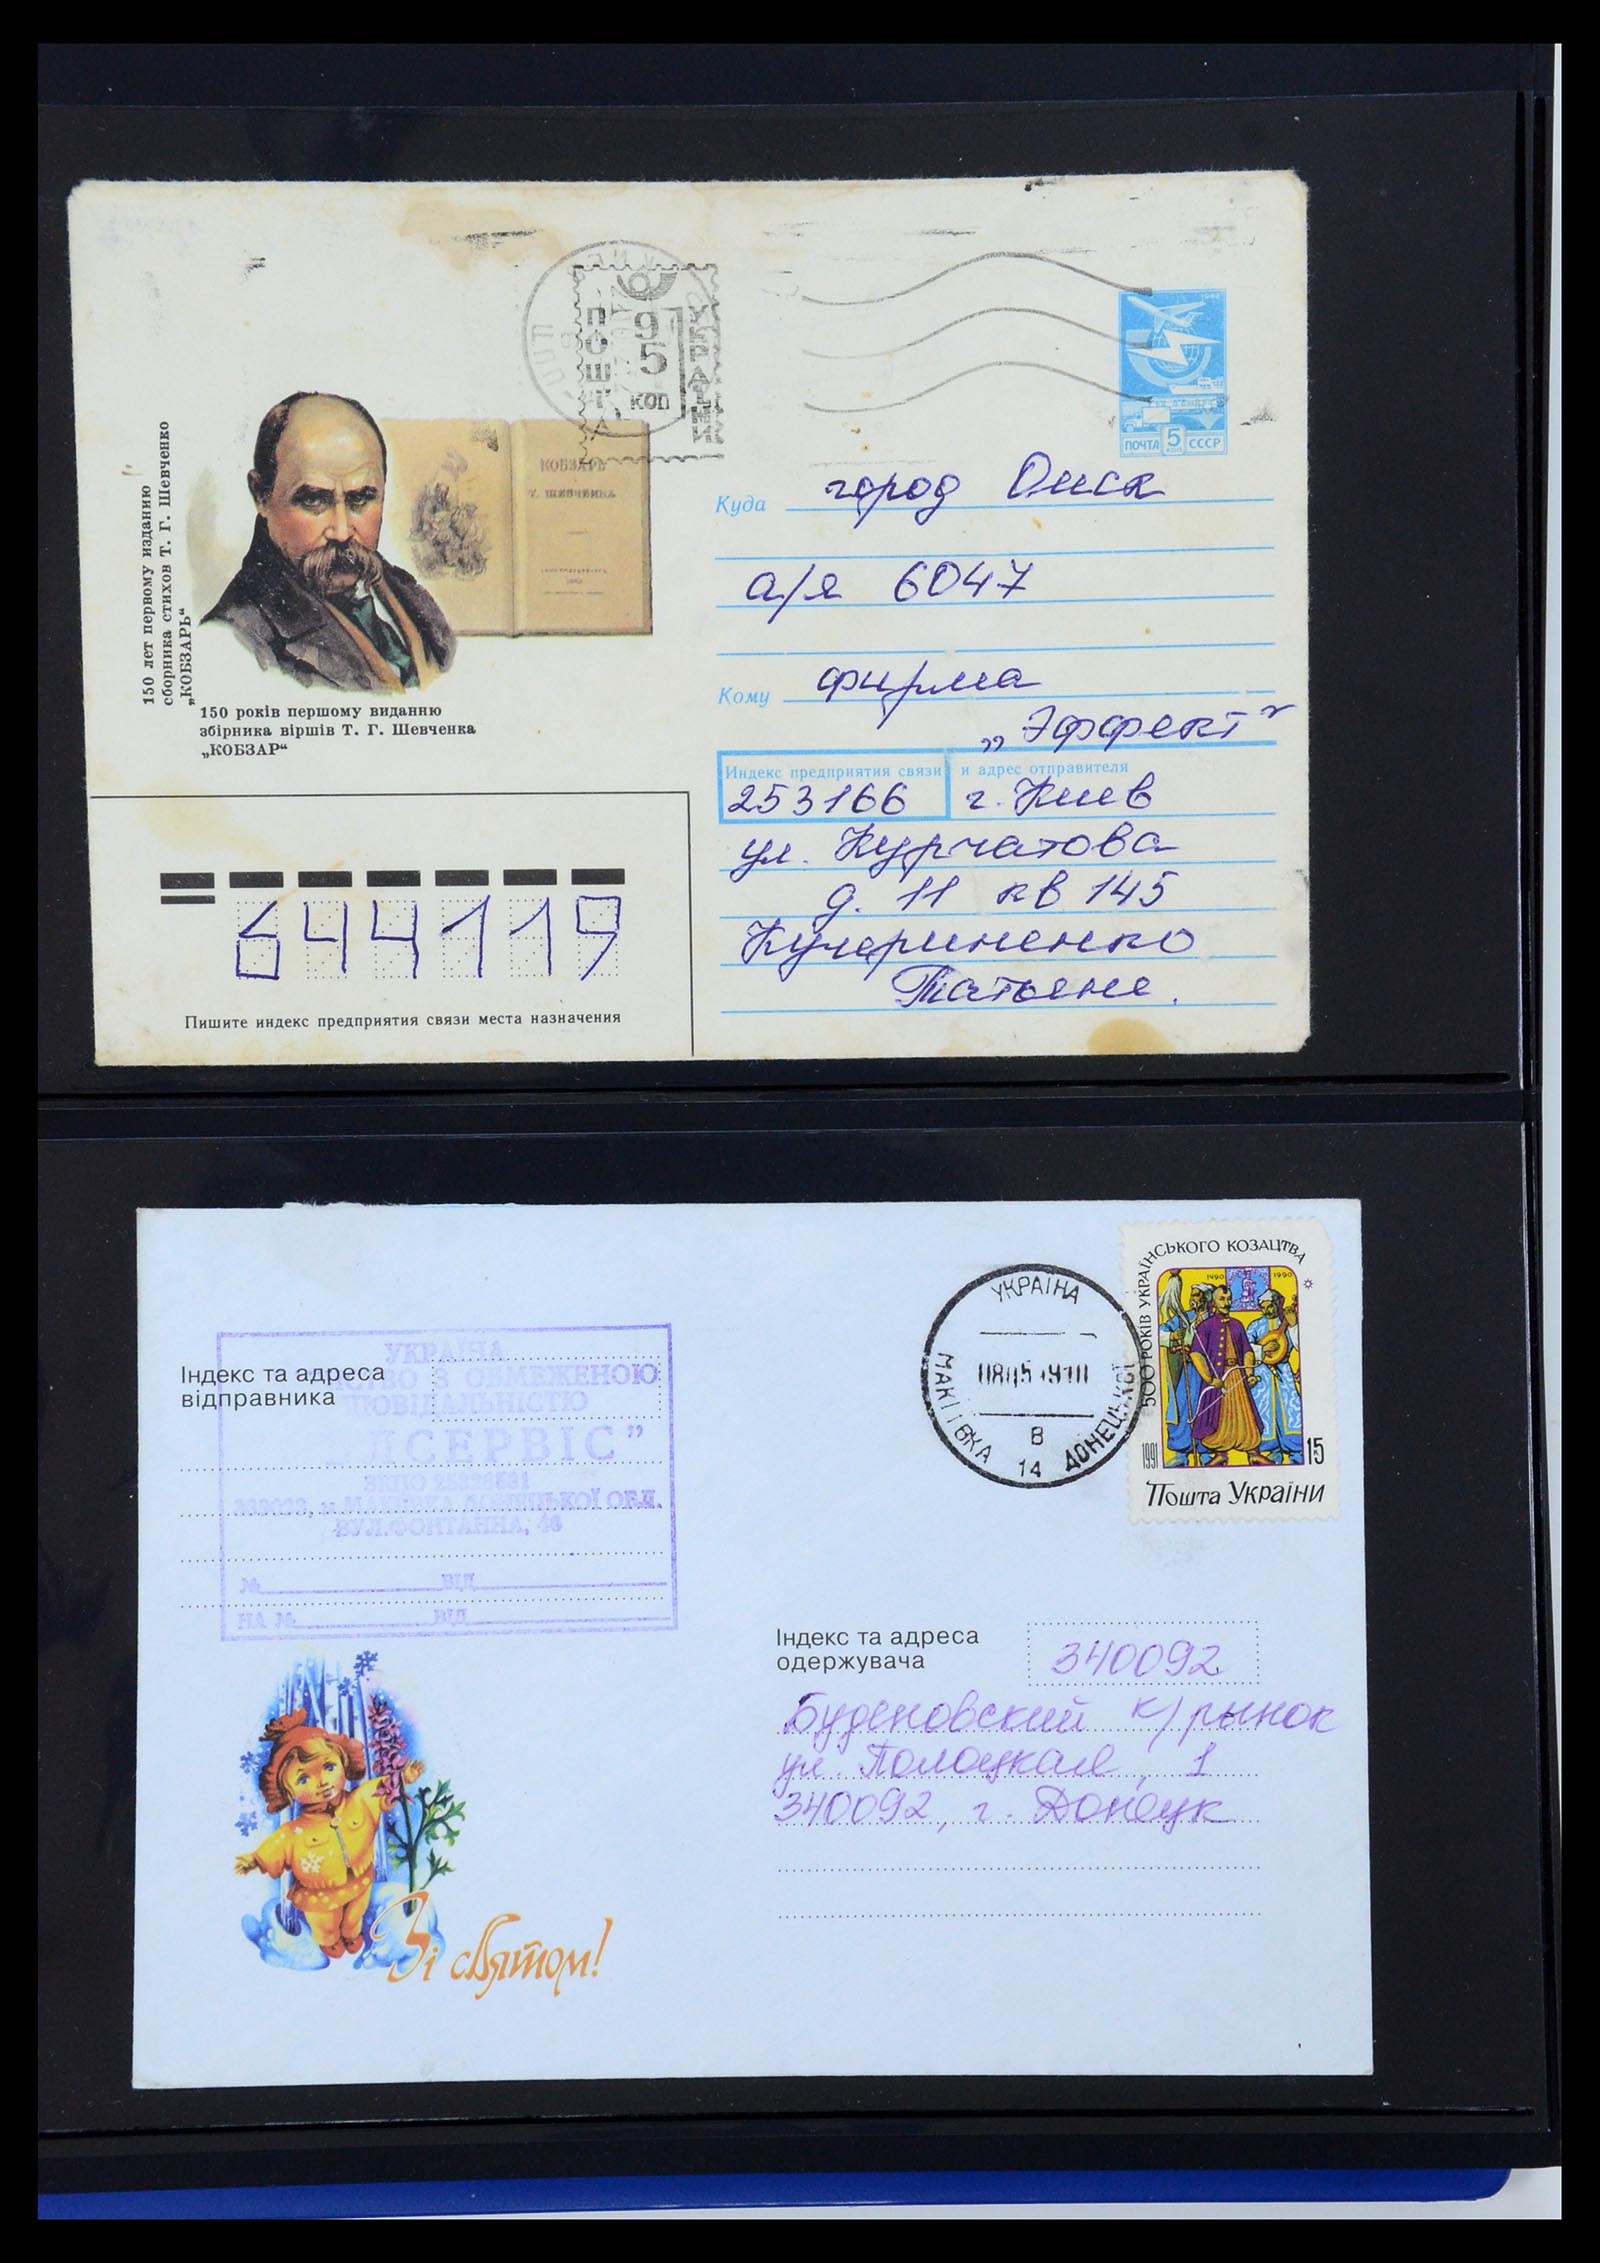 ПОШТА
95
коп
УКРАЇНИ
1982
ПОЧТА 5 КОП СССР
150 лет первому изданию
сборника стихов Т. Г. Шевченко
„КОБЗАРЬ“
КОБЗАРЬ
Т. ШЕВЧЕНКА
150 років першому виданню
збірника віршів Т. Г. Шевченка
„КОБЗАР“
Куда город Омск
а/я 6047
Кому фирма
„Эффект“
Индекс предприятия связи и адрес отправителя
253166 г. Киев
ул. Курчатова
д. 11 кв 145
Кучериненко
Татьяне.
644119
Пишите индекс предприятия связи места назначения
500 РОКІВ УКРАЇНСЬКОГО КОЗАЦТВА
1490 1990
1991
15
Пошта України
УКРАЇНА
МАКІЇВКА
ДОНЕЦЬКОЇ
В
14
Індекс та адреса
відправника
УКРАЇНА
З ОБМЕЖЕНОЮ
ПОВІДАЛЬНІСТЮ
ЛСЕРВІС”
ЗКПО
м. МАКІЇВКА ДОНЕЦЬКОЇ ОБЛ.
ВУЛ.ФОНТАННА, 46
№ ВІД
НА № ВІД
Індекс та адреса
одержувача
340092
Буденовский к/рынок
ул. Полоцкая, 1
340092, г. Донецк
Зі святом!